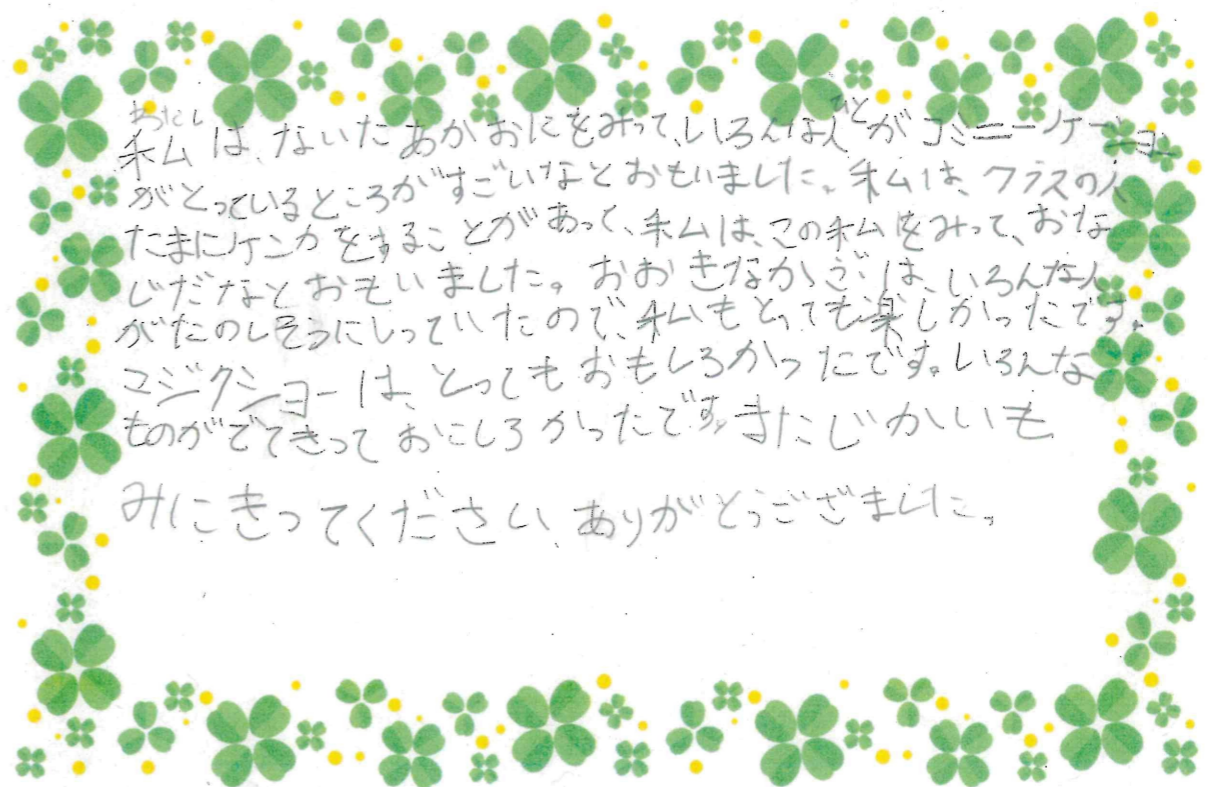 わたし
私は、ないたあかおにをみって、いろんな人がコミニーケーショ
ひと
がとっているところがすごいなとおもいました。私は、クラスの人
たまにケンカをすることがあって、私は、この私をみって、おな
じだなとおもいました。おおきなかぶは、いろんな人
がたのしそうにしっていたので、私もとっても楽しかったです。
マジクショーは、とってもおもしろかったです。いろんな
ものがでてきっておにしろかったです。またじかいも
みにきってください、ありがとうございました。